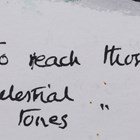 to reach those
celestial "
tones